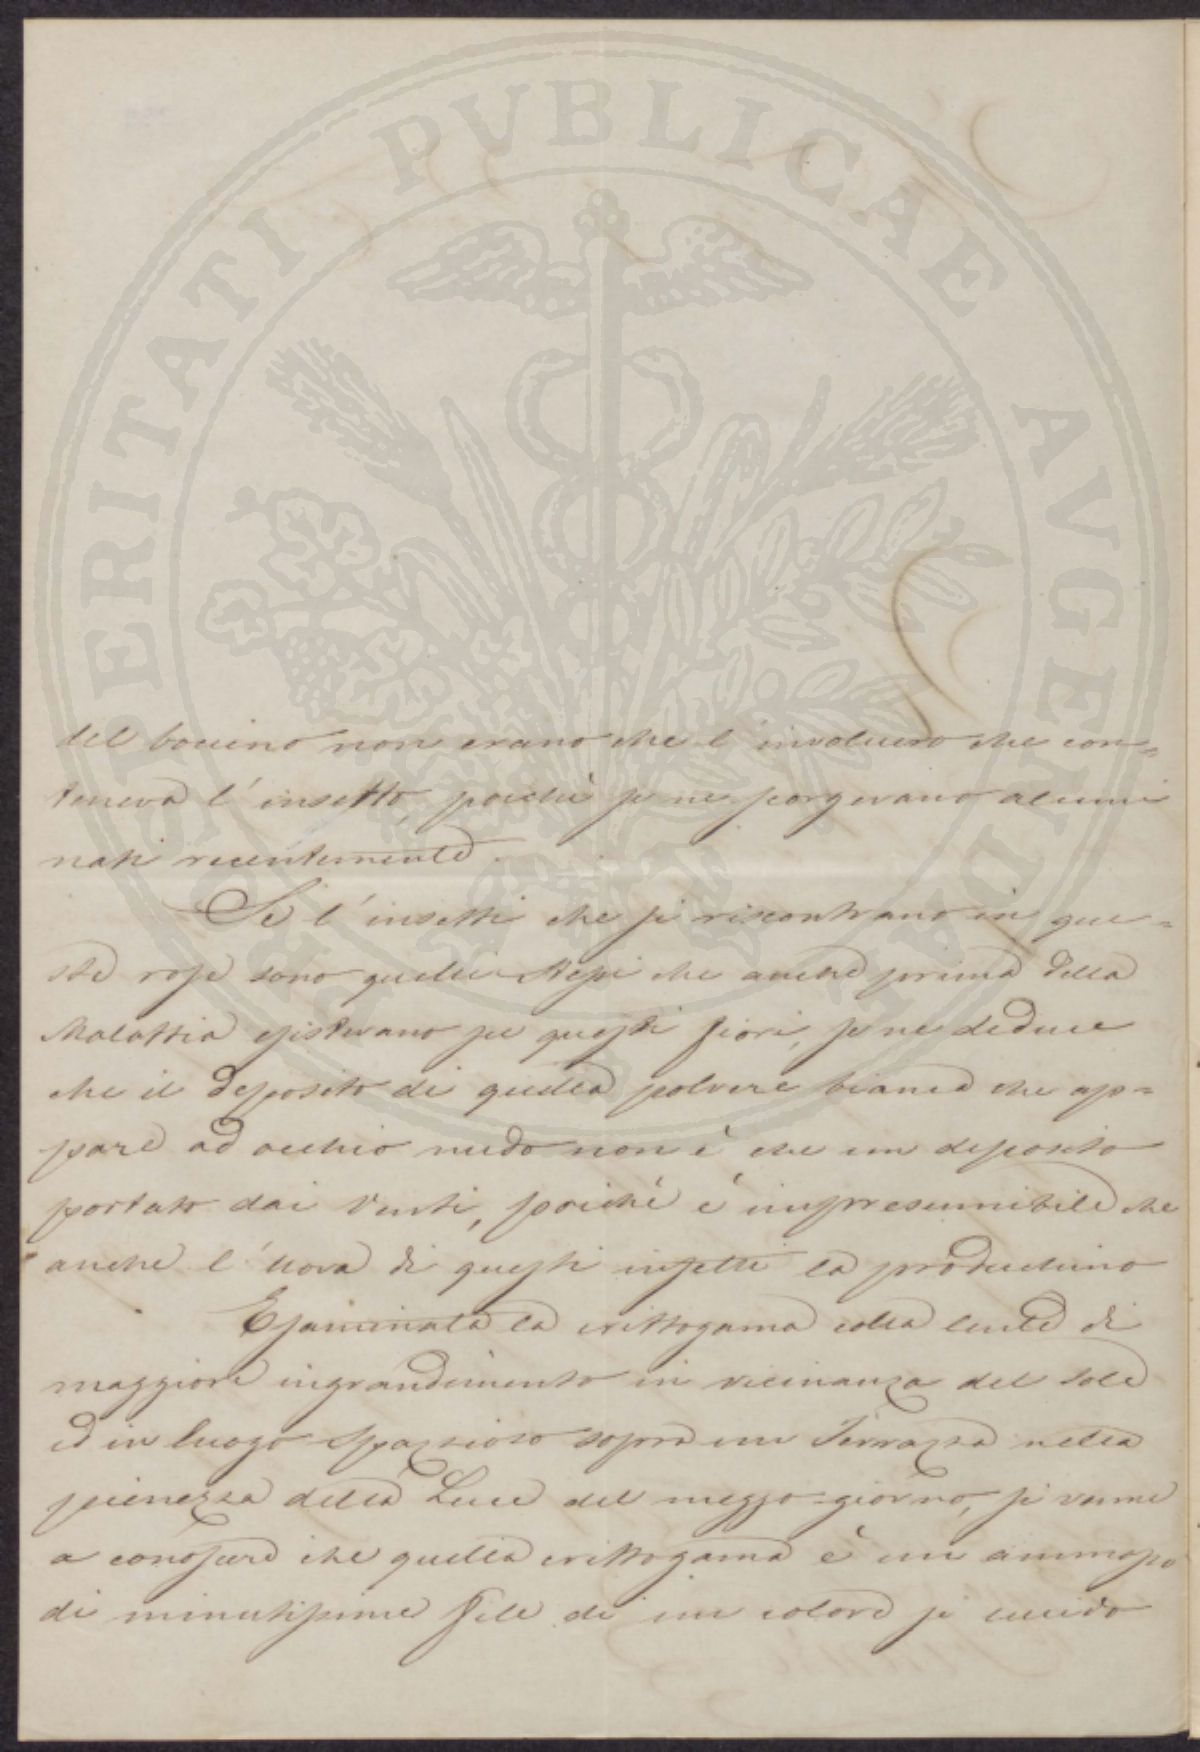 PROSPERITATI PVBLICAE AVGENDAE
del bocino non erano che l'involucro che con=
teneva l'insetto, poichè se ne scorgevano alcuni
nati recentemente.
Se l'insetti che si riscontrano in que=
ste rose sono quelli stessi che anche prima della
Malattia esistevano su questi fiori, se ne deduce
che il deposito di quella polvere bianca che ap=
pare ad occhio nudo non è che un deposito
portato dai Venti, poichè è impresumibile che
anche l'uova di questi insetti la producino
Esaminata la crittogama colla lente di
maggiore ingrandimento in vicinanza del sole
ed in luogo spazzioso sopra un Terrazza nella
pienezza della Luce del mezzo-giorno, si venne
a conoscere che quella crittogama è un ammasso
di minutissime file di un colore si lucido